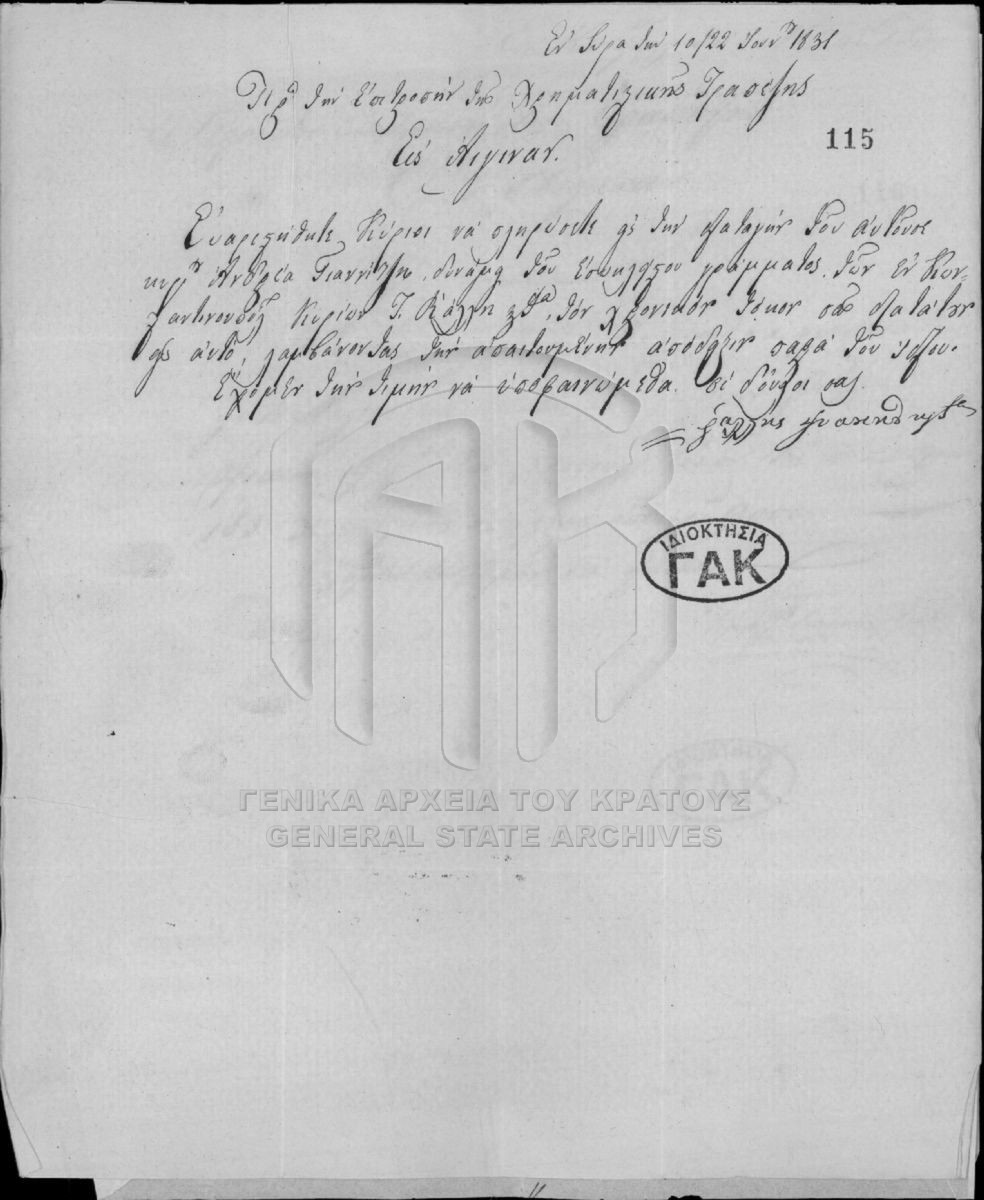 Ἐν Σύρα τὴν 10/22 Ἰουν 1831
Πρ τὴν Ἐπιτροπὴν τῆς Χρηματιστικῆς Τραπέζης
115
Εἰς Αἴγιναν.
Εὐαρεστηθῆτε Κύριοι νὰ πληρώσετε εἰς τὴν διαταγὴν τοῦ αὐτόσε
κυρ Ἀνδρέα Γιαννίτζη, δυνάμει τοῦ γράμματος τῶν ἐν Κων-
σταντινουπόλ Κυρίων Ι. Ράλλη τὸν χρονικὸν τόκον
εἰς αὐτό, λαμβάνοντας τὴν ἀπαιτουμένην ἀπόδειξιν παρὰ τοῦ ἰδίου.
Ἔχομεν τὴν τιμὴν νὰ ὑποφαινώμεθα. οἱ δοῦλοι σας
ΙΔΙΟΚΤΗΣΙΑ
ΓΑΚ
ΓΕΝΙΚΑ ΑΡΧΕΙΑ ΤΟΥ ΚΡΑΤΟΥΣ
GENERAL STATE ARCHIVES